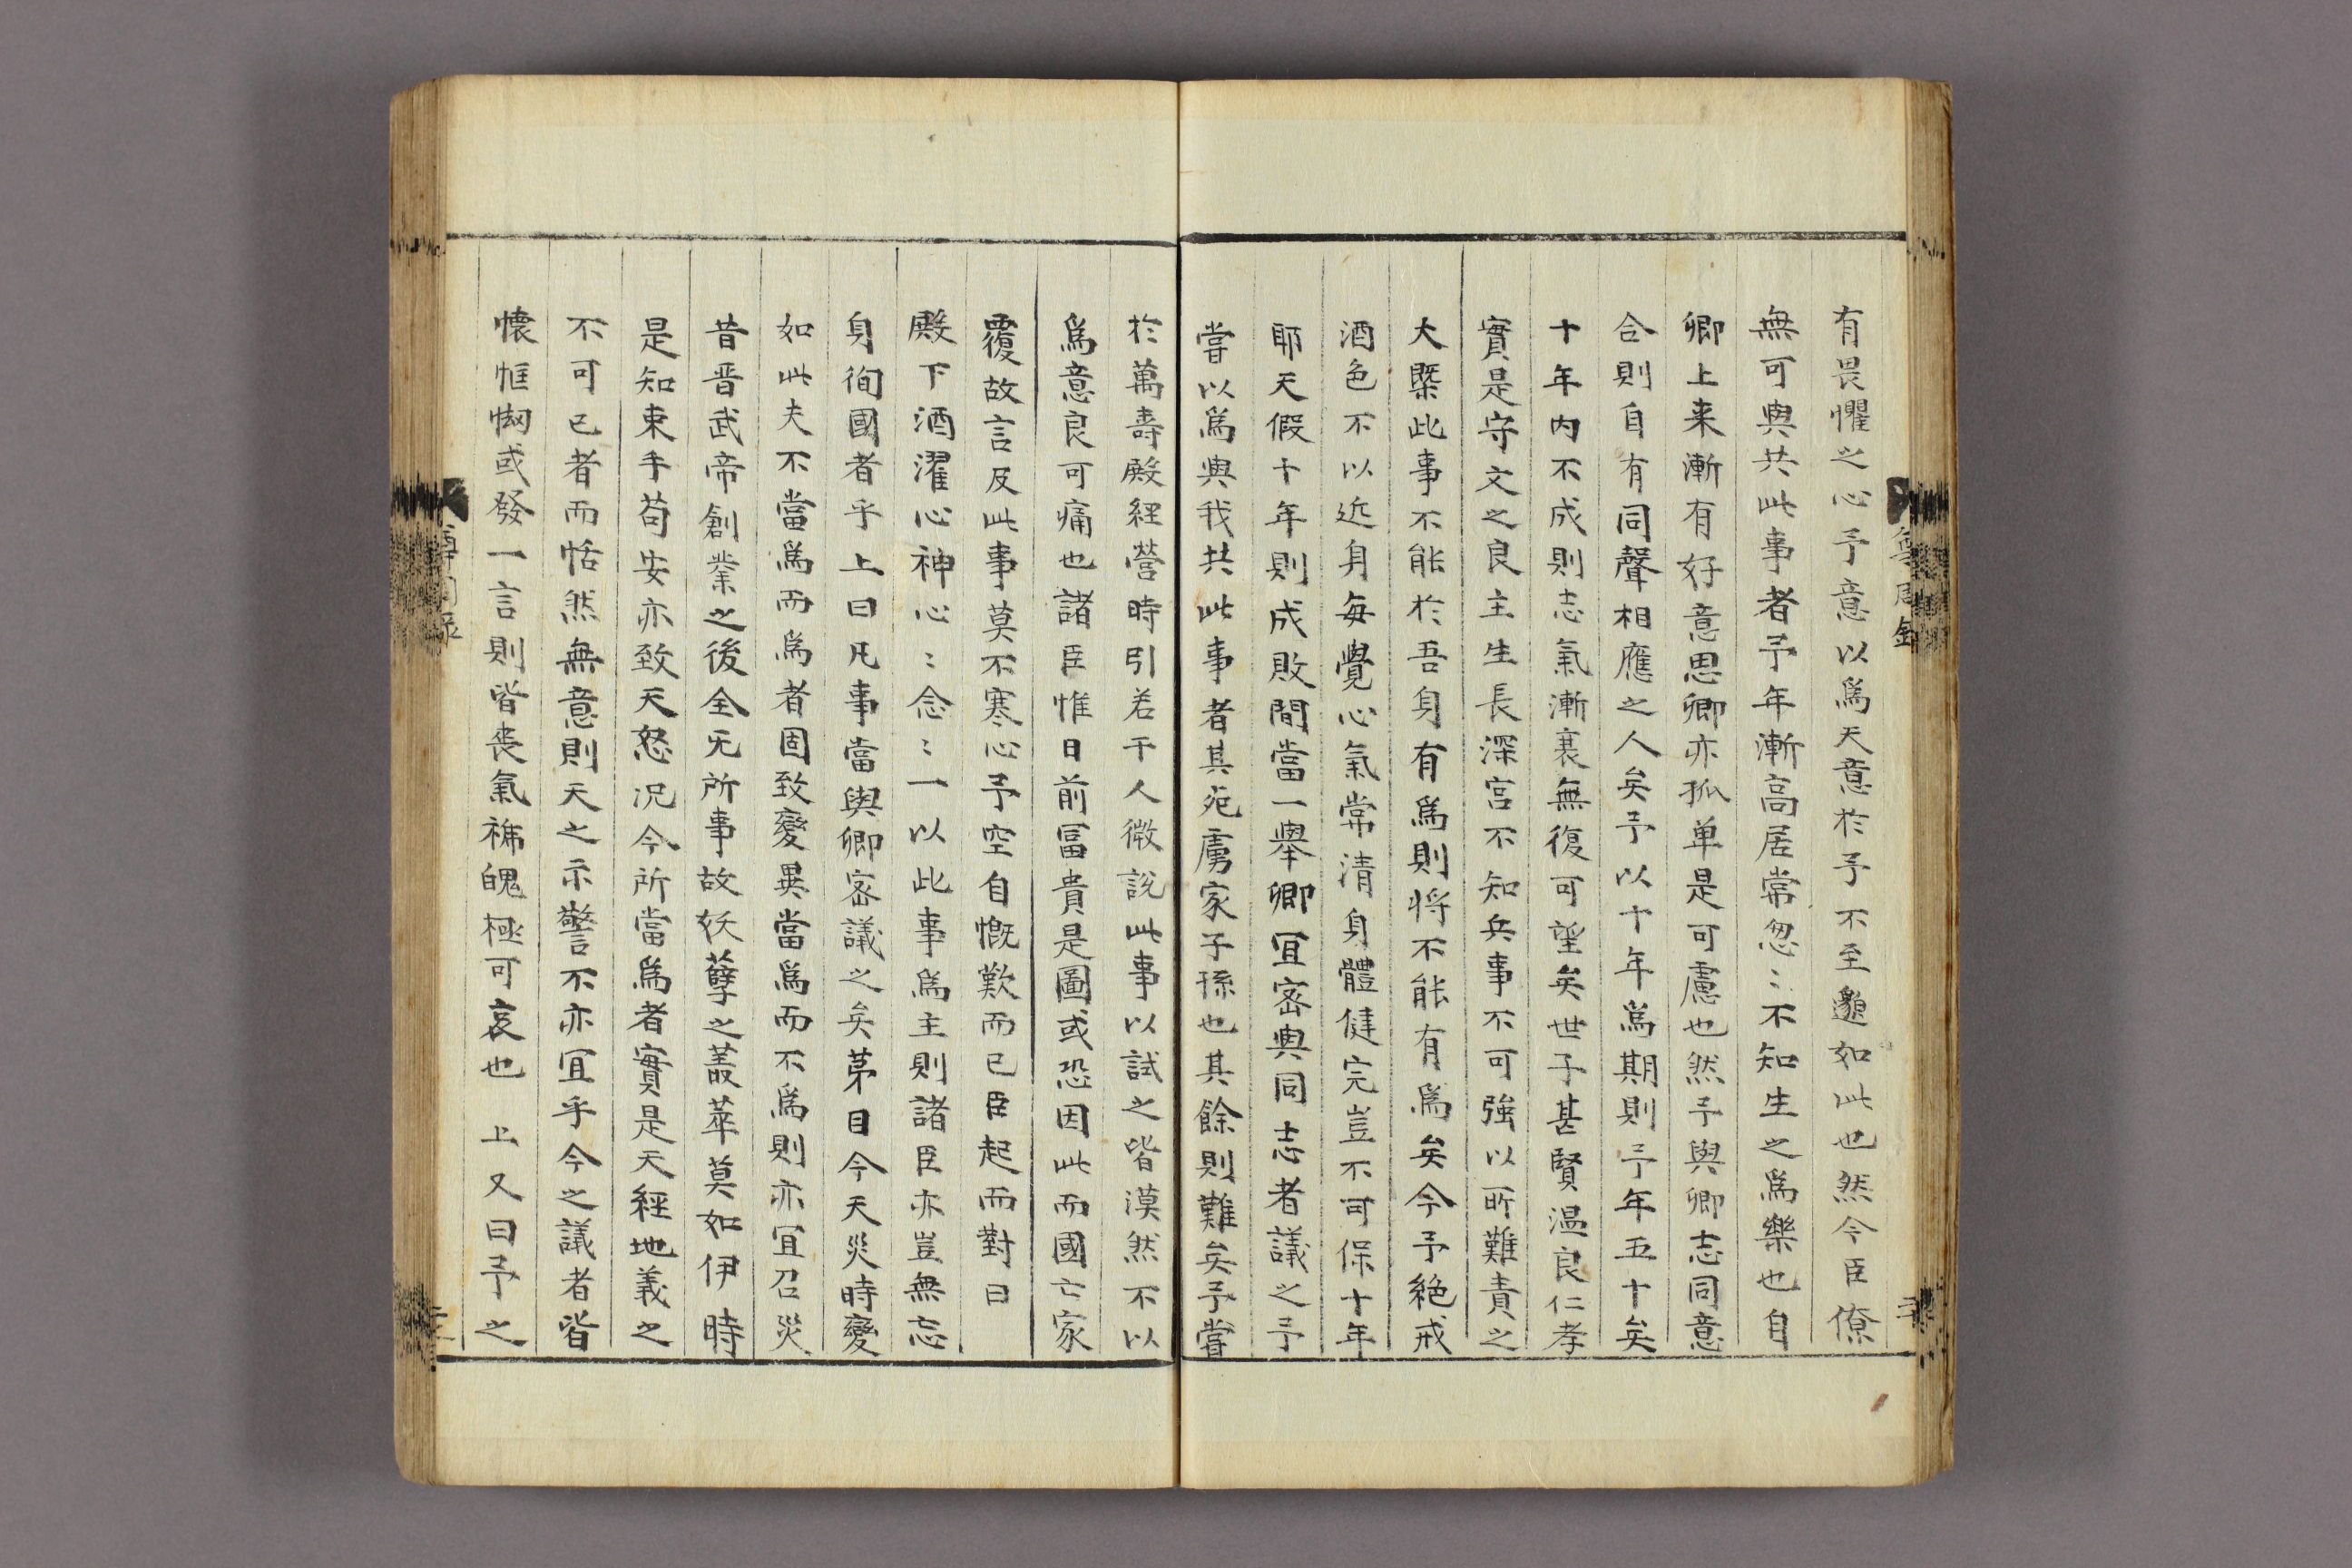 有畏懼之心予意以為天意於予不至邈如此也然今臣僚
無可與共此事者予年漸高居常忽〻不知生之為樂也自
卿上来漸有好意思卿亦孤单是可慮也然予與卿志同意
合則自有同聲相應之人矣予以十年為期則予年五十矣
十年內不成則志氣漸衰無復可望矣世子甚賢温良仁孝
實是守文之良主生長深宮不知兵事不可強以所難責之
大槩此事不能於吾身有為則将不能有為矣今予絶戒
酒色不以近身每覺心氣常清身體健完豈不可保十年
耶天假十年則成敗間當一舉卿冝密與同志者議之予
嘗以為與我共此事者其死虜家子孫也其餘則難矣予嘗
於萬壽殿経營時引若干人微說此事以試之皆漠然不以
為意良可痛也諸臣惟目前冨貴是圖或恐因此而國亡家
覆故言及此事莫不寒心予空自慨歎而已臣起而對曰
殿下酒濯心神心〻念〻一以此事為主則諸臣亦豈無忘
身徇國者乎上曰凡事當與卿密議之矣苐目今天災時變
如此夫不當為而為者固致變異當為而不為則亦冝召災
昔晋武帝創業之後全无所事故妖孽之叢萃莫如伊時
是知束手苟安亦致天怒况今所當為者實是天經地義之
不可已者而恬然無意則天之示警不亦冝乎今之議者皆
懐恇㤼或發一言則皆丧氣褫魄極可哀也 上又曰予之